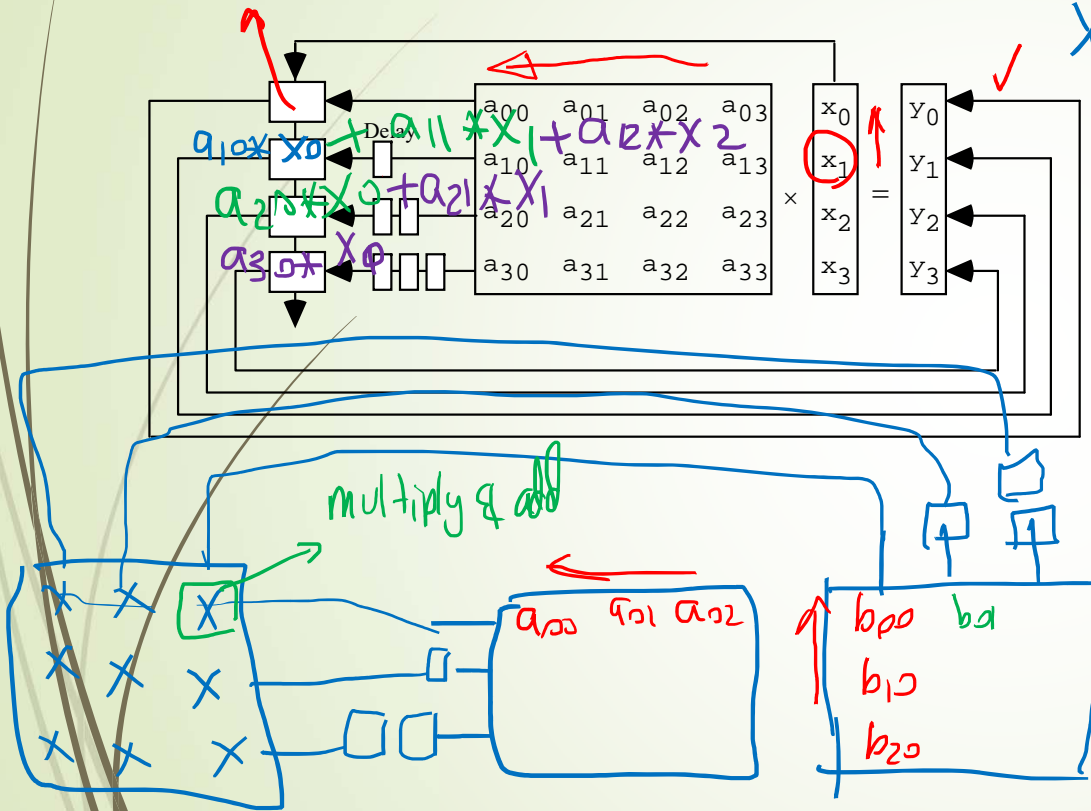 Delay
a00 a01 a02 a03
a10 a11 a12 a13
a20 a21 a22 a23
a30 a31 a32 a33
×
x0
x1
x2
x3
=
y0
y1
y2
y3
a10* x0 + a11 * x1 + a12 * x2
a20*x0 + a21*x1
a30* x0
multiply & add
x x x
x x x
x x x
a00 a01 a02
b00 b01
b10
b20